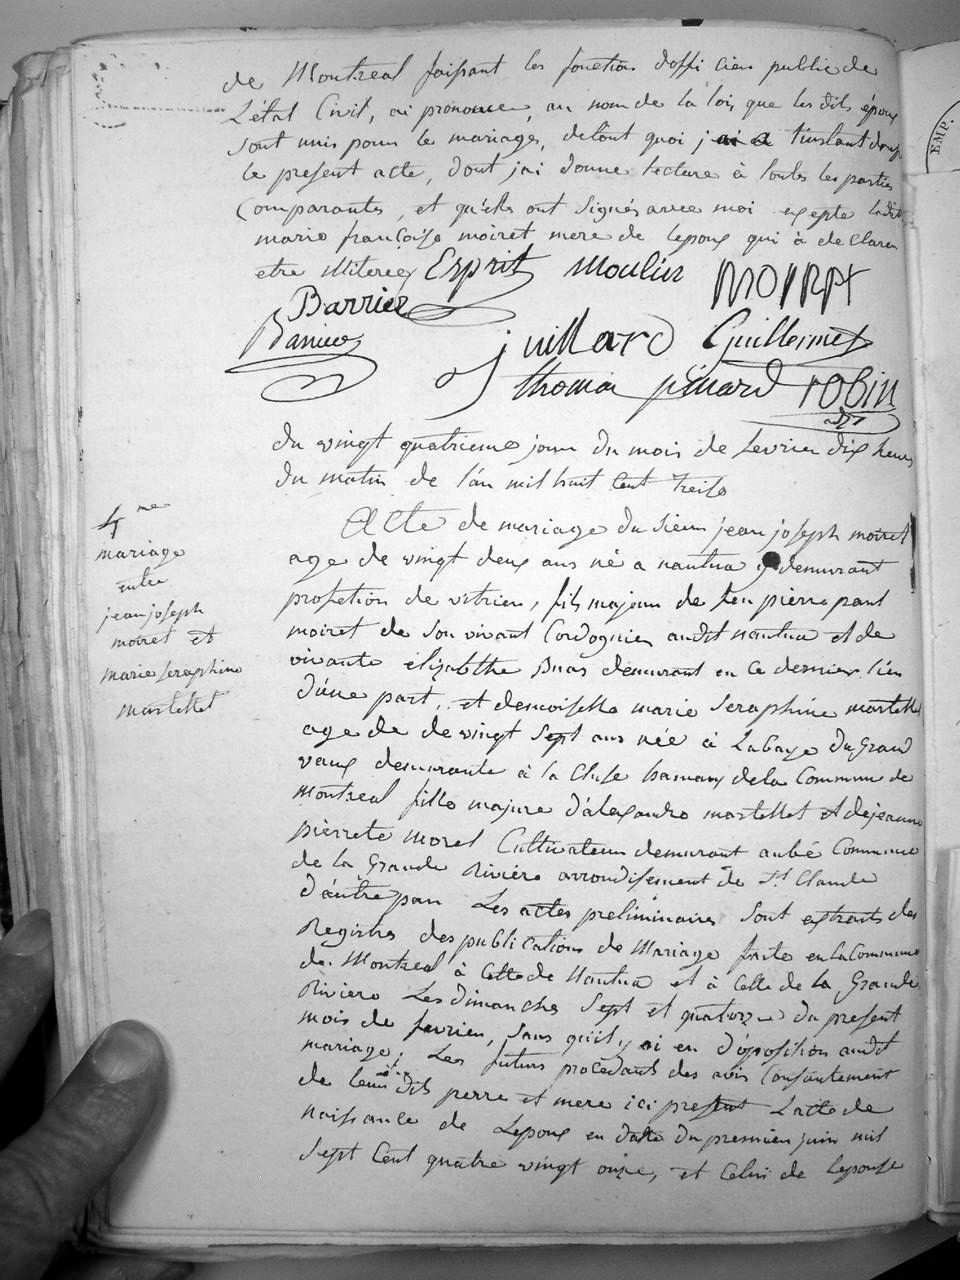 de Montreal faisant les fonction d'officier public de
L'état Civil, ai prononce, au nom de la loi, que les dits époux
sont unis pour le mariage, detout quoi j'ai a l'instant
le present acte, dont j'ai donne lecture à toutes les parties
Comparantes, et qu'elles ont signés avec moi excepte ladite
marie françoise moiret mere de lepoux qui à declarer
etre illiteree Esprit Moulin MOIRET
Barrier
Barrier juillard Guillermet
thoma pinard robin
du vingt quatrieme jour du mois de fevrier dix heures
du matin de l'an mil huit Cent treise
4me
mariage
entre
jean joseph
moiret et
marie seraphine
martelet
Acte de mariage du sieur jean joseph moiret
age de vingt deux ans né a nantua y demeurant
profetion de vitrier, fils majeur de feu pierre paul
moiret de son vivant Cordognier audit nantua et de
vivante elizabethe Buas demeurant en ce dernier lieu
d'une part, et demoiselle marie Seraphine martelet
age de de vingt Sept ans née à Labaye du Grand
vaux demeurante à la Cluse hameau de la Commune de
Montreal fille majure d'alexandre martelet et de jeanne
pierrete morel Cultivateur demeurant au bé Commune
de la Grande Rivière arrondisement de St Claude
d'autre part Les actes preliminaires Sont extraits des
Registres des publications de Mariage faite en la Commune
de Montreal à Cette de Nantua et à Celle de la Grande
Riviere Les dimanches Sept et quatorze du present
mois de fevrier, sans qu'il y ai eu d'oposition audit
mariage; Les futurs procedant des avis Consentement
de leurs dits perre et mere ici present Lacte de
naissance de Lepoux en date du premier juin mil
Sept Cent quatre vingt onze, et Celui de lepouse